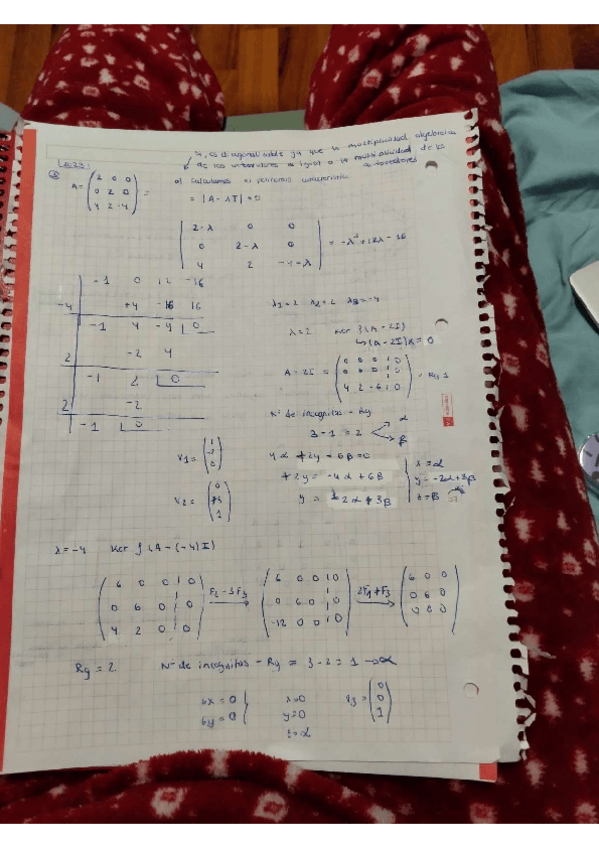 →, es diagonalizable ya que la multiplicidad algebraica
de los autovalores es igual a la multiplicidad de los
autovectores
A = (2 0 0
0 2 0
4 2 -4) =
a) Calculamos el polinomio característico
= |A - λI| = 0
|2-λ 0 0|
|0 2-λ 0| = -λ³+12λ-16
|4 2 -4-λ|
-1 0 12 -16
-4 +4 -16 16
-1 4 -4 0
2 -2 4
-1 2 0
2 -2
-1 0
λ1=2 λ2=2 λ3=-4
λ=2 Ker f(A-2I)
↳(A-2I)X=0
A-2I = (0 0 0 | 0
0 0 0 | 0
4 2 -6 | 0) = Rg 1
Nº de incognitas - Rg
3-1=2 α
β
4α+2y-6β=0
+2y=-4α+6β
y=-2α+3β
x=α
y=-2α+3β
z=β
V1= (1
-2
0)
V2= (0
+3
1)
λ=-4 Ker f(A-(-4)I)
(6 0 0 | 0
0 6 0 | 0
4 2 0 | 0)
F2-3F3 →
(6 0 0 | 0
0 6 0 | 0
-12 0 0 | 0)
2F1+F3 →
(6 0 0
0 6 0
0 0 0)
Rg=2 Nº de incognitas - Rg = 3-2=1 →α
6x=0 x=0
6y=0 y=0
z=α
V3= (0
0
1)